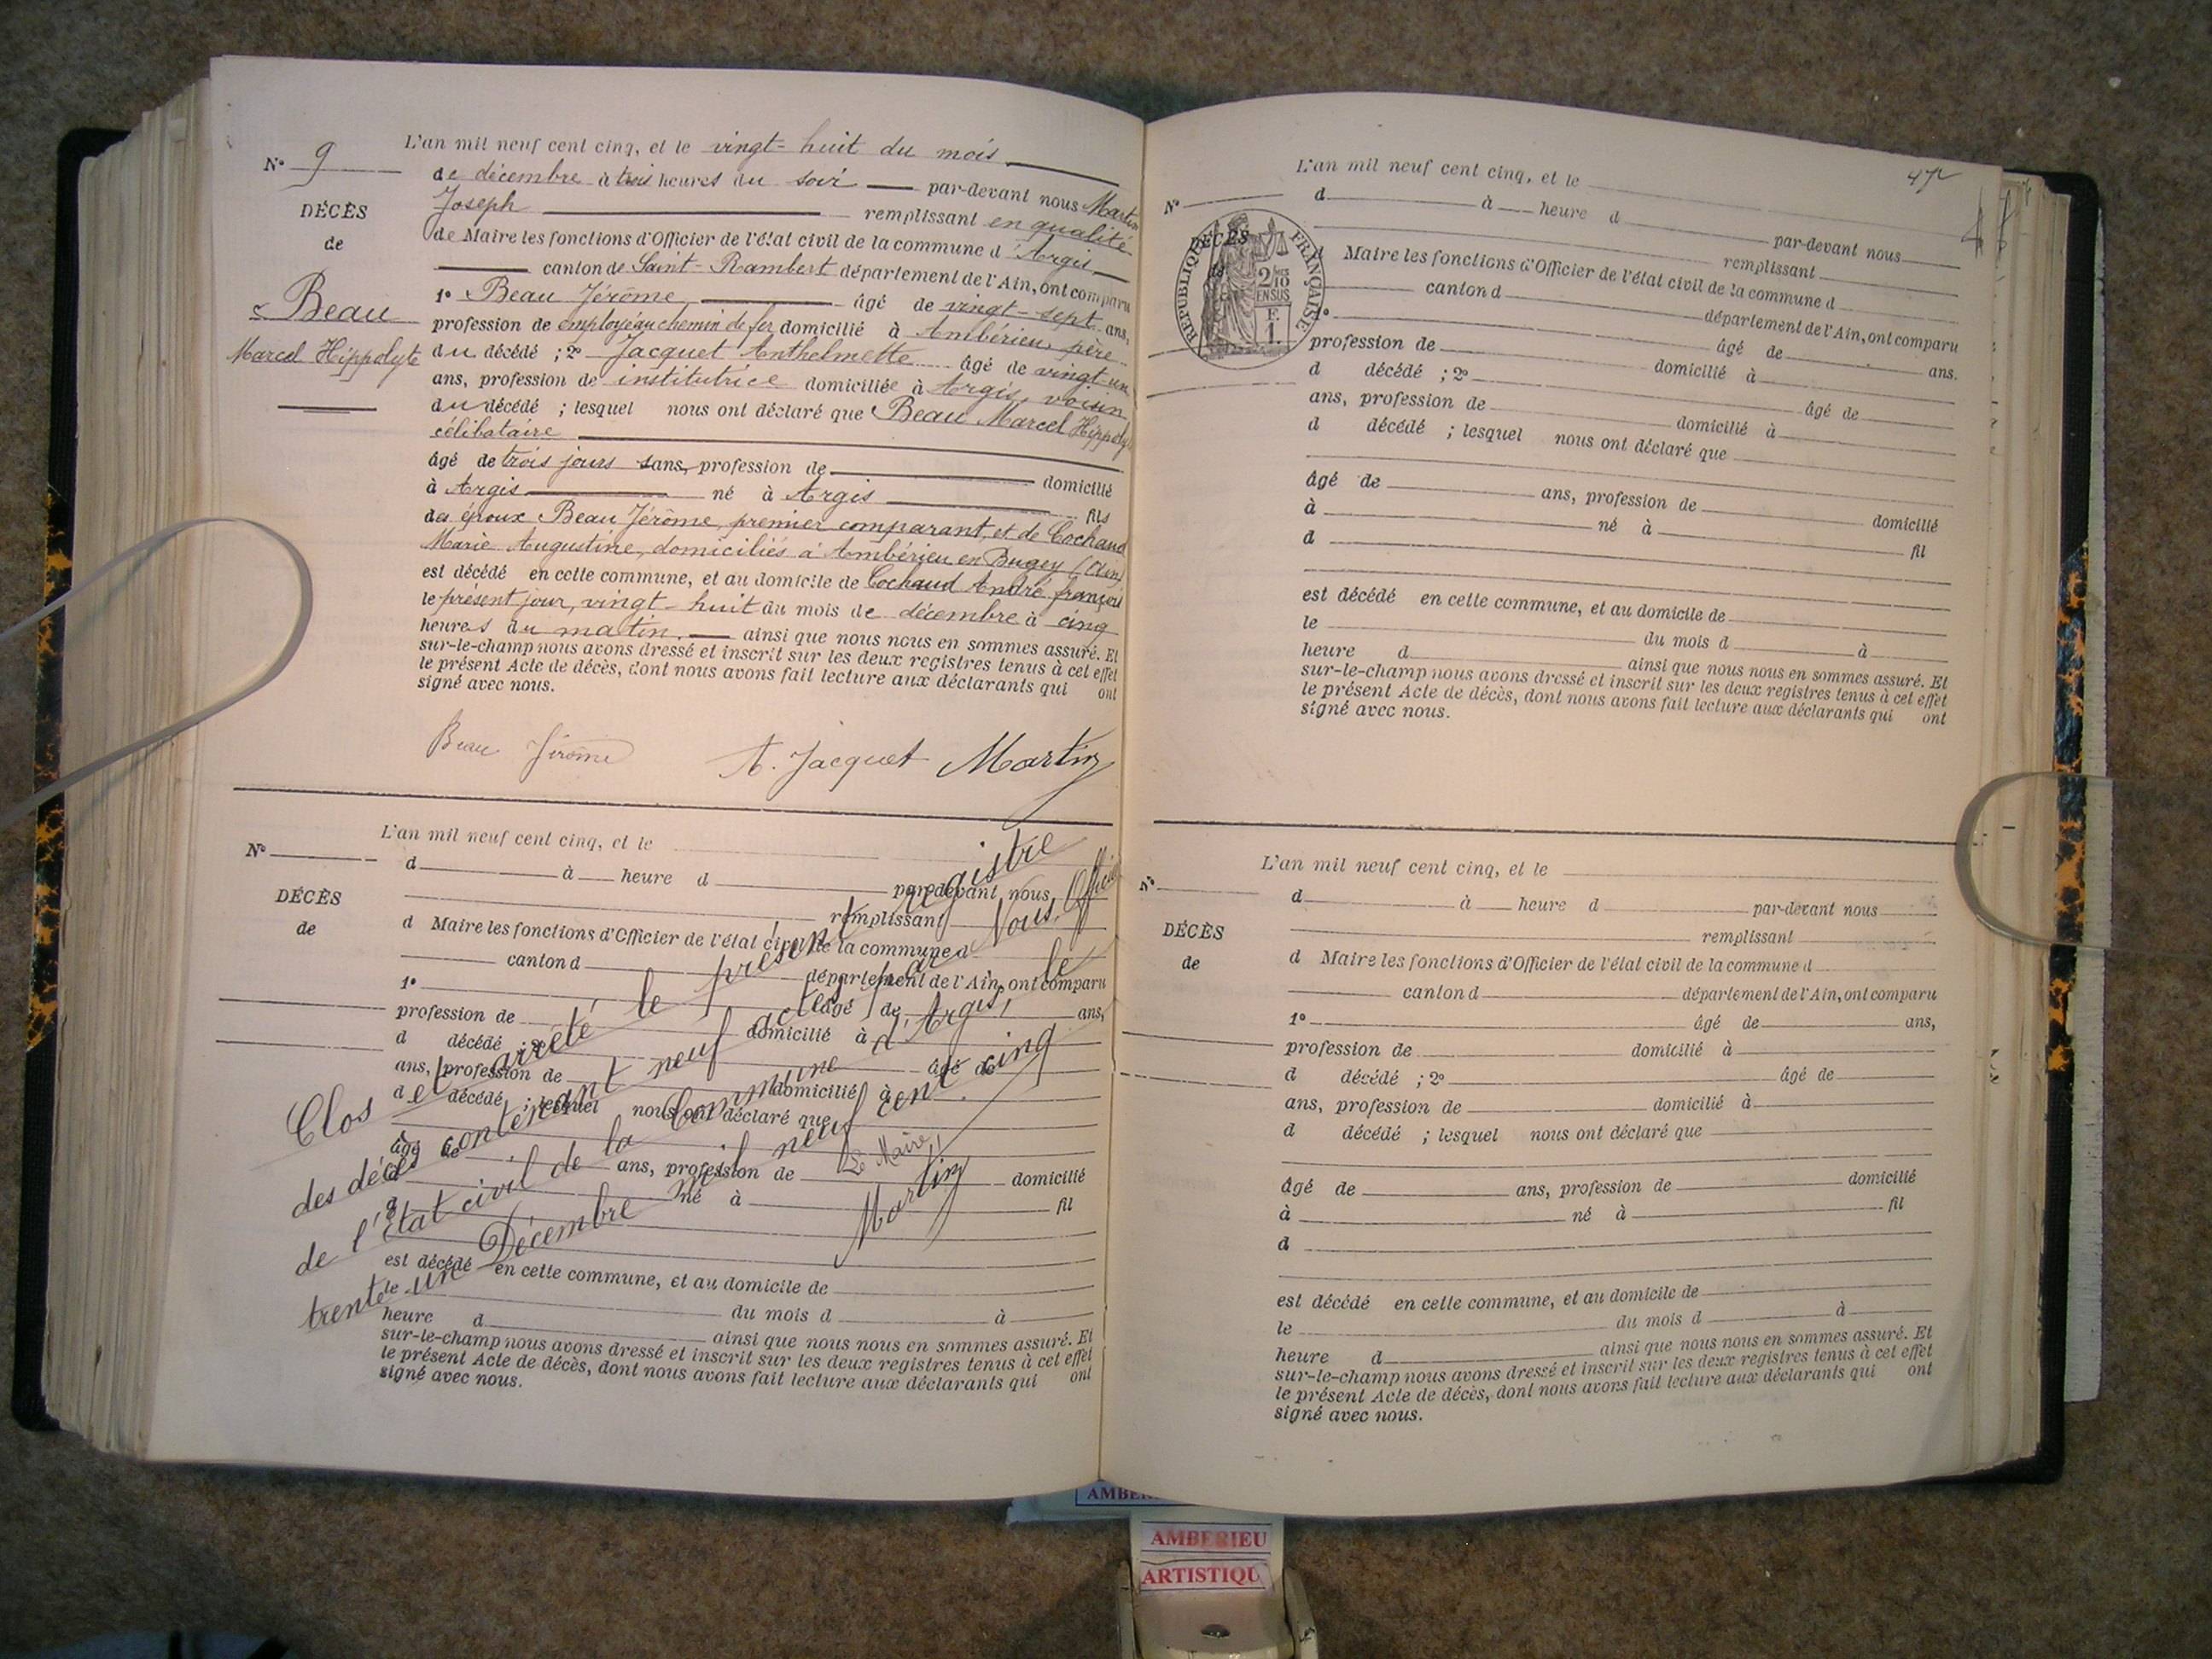 N° 9
DÉCÈS
de
Beau
Marcel Hippolyte
L'an mil neuf cent cinq, et le vingt-huit du mois
de décembre à trois heures du soir par-devant nous Martin
Joseph remplissant en qualité
de Maire les fonctions d'Officier de l'état civil de la commune d'Argis
canton de Saint-Rambert département de l'Ain, ont comparu
1° Beau Jérôme, âgé de vingt-sept ans,
profession de employé au chemin de fer, domicilié à Ambérieu, père
du décédé ; 2° Jacquet Anthelmette âgé de vingt-un
ans, profession de institutrice domiciliée à Argis, voisin
du décédé ; lesquel nous ont déclaré que Beau Marcel Hippolyte
célibataire
âgé de trois jours sans, profession de domicilié
à Argis né à Argis fils
des époux Beau Jérôme, premier comparant, et de Cochaud
Marie Augustine, domiciliés à Ambérieu en Bugey (Ain)
est décédé en cette commune, et au domicile de Cochaud André françois
le présent jour, vingt-huit du mois de décembre à cinq
heures du matin. ainsi que nous nous en sommes assuré. Et
sur-le-champ nous avons dressé et inscrit sur les deux registres tenus à cet effet
le présent Acte de décès, dont nous avons fait lecture aux déclarants qui ont
signé avec nous.
Beau Jérôme A. Jacquet Martin
N°
DÉCÈS
de
L'an mil neuf cent cinq, et le
d à heure d par-devant nous
remplissant
d Maire les fonctions d'Officier de l'état civil de la commune d
canton d département de l'Ain, ont comparu
1° âgé de ans,
profession de domicilié à
d décédé ; 2° âgé de
ans, profession de domicilié à
d décédé ; lesquel nous ont déclaré que
âgé de ans, profession de domicilié
à né à fil
d
est décédé en cette commune, et au domicile de
le du mois d à
heure d ainsi que nous nous en sommes assuré. Et
sur-le-champ nous avons dressé et inscrit sur les deux registres tenus à cet effet
le présent Acte de décès, dont nous avons fait lecture aux déclarants qui ont
signé avec nous.
Clos et arrêté le présent registre
des décès contenant neuf actes, par Nous, Officier
de l'État civil de la Commune d'Argis, le
trente-un Décembre mil neuf cent cinq
Le Maire,
Martin
47
N°
DÉCÈS
de
RÉPUBLIQUE FRANÇAISE
2/10
EN SUS
F.
1.
L'an mil neuf cent cinq, et le
d à heure d par-devant nous
remplissant
d Maire les fonctions d'Officier de l'état civil de la commune d
canton d département de l'Ain, ont comparu
1° âgé de ans.
profession de domicilié à
d décédé ; 2° âgé de
ans, profession de domicilié à
d décédé ; lesquel nous ont déclaré que
âgé de ans, profession de domicilié
à né à fil
d
est décédé en cette commune, et au domicile de
le du mois d à
heure d ainsi que nous nous en sommes assuré. Et
sur-le-champ nous avons dressé et inscrit sur les deux registres tenus à cet effet
le présent Acte de décès, dont nous avons fait lecture aux déclarants qui ont
signé avec nous.
N°
DÉCÈS
de
L'an mil neuf cent cinq, et le
d à heure d par-devant nous
remplissant
d Maire les fonctions d'Officier de l'état civil de la commune d
canton d département de l'Ain, ont comparu
1° âgé de ans,
profession de domicilié à
d décédé ; 2° âgé de
ans, profession de domicilié à
d décédé ; lesquel nous ont déclaré que
âgé de ans, profession de domicilié
à né à fil
d
est décédé en cette commune, et au domicile de
le du mois d à
heure d ainsi que nous nous en sommes assuré. Et
sur-le-champ nous avons dressé et inscrit sur les deux registres tenus à cet effet
le présent Acte de décès, dont nous avons fait lecture aux déclarants qui ont
signé avec nous.
AMBERIEU
ARTISTIQU